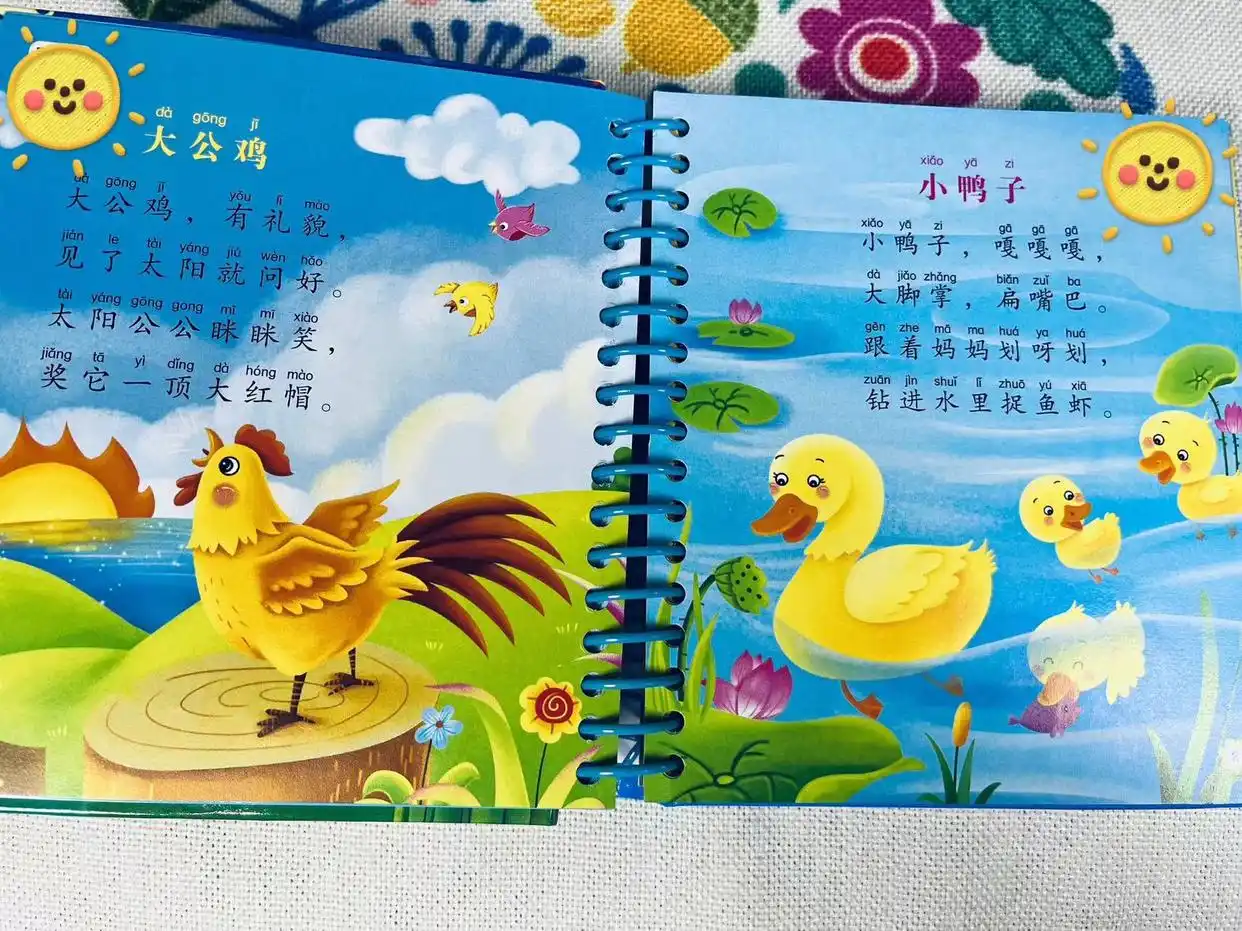 dà gōng jī
大公鸡
dà gōng jī yǒu lǐ mào
大公鸡，有礼貌，
jiàn le tài yáng jiù wèn hǎo
见了太阳就问好。
tài yáng gōng gong mī mī xiào
太阳公公眯眯笑，
jiǎng tā yì dǐng dà hóng mào
奖它一顶大红帽。
xiǎo yā zi
小鸭子
xiǎo yā zi gā gā gā
小鸭子，嘎嘎嘎，
dà jiǎo zhǎng biǎn zuǐ ba
大脚掌，扁嘴巴。
gēn zhe mā ma huá ya huá
跟着妈妈划呀划，
zuān jìn shuǐ lǐ zhuō yú xiā
钻进水里捉鱼虾。